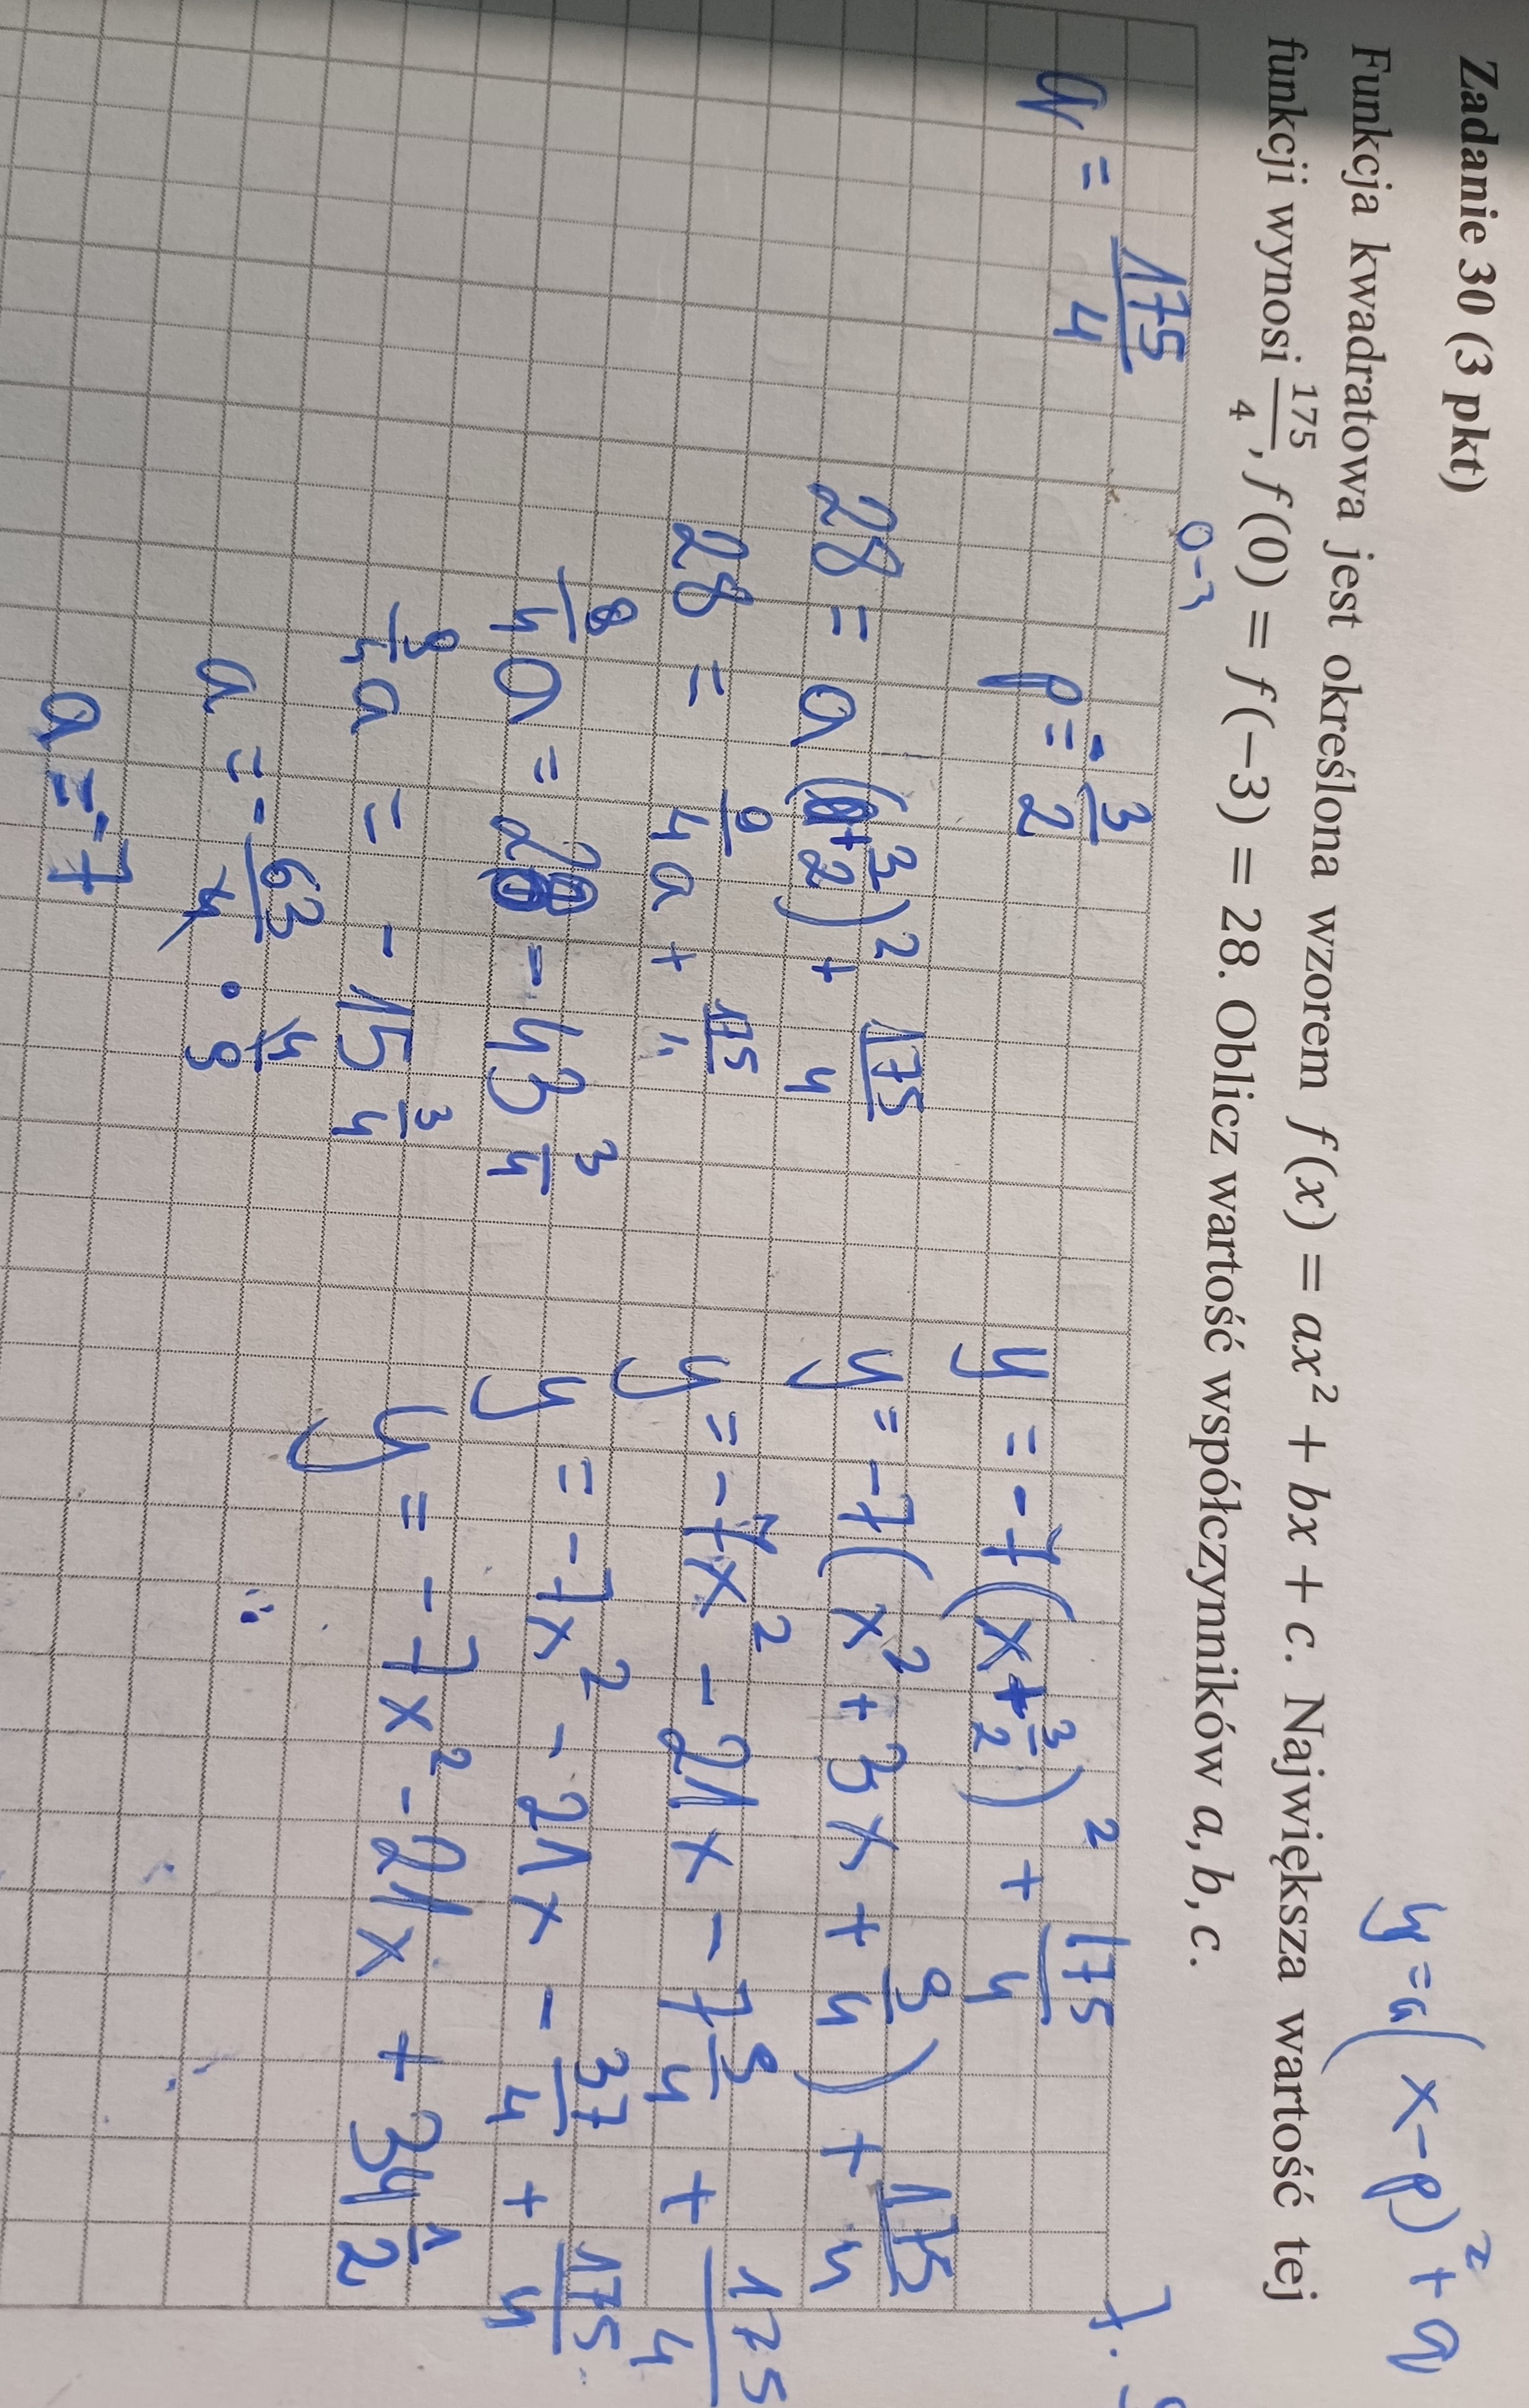 y = a(x-p)² + q
Zadanie 30 (3 pkt)
Funkcja kwadratowa jest określona wzorem f(x) = ax² + bx + c. Największa wartość tej
funkcji wynosi 175/4, f(0) = f(−3) = 28. Oblicz wartość współczynników a, b, c.
0-3
7.
q = 175/4
p = -3/2
28 = a(0+3/2)² + 175/4
28 = 9/4 a + 175/4
9/4 a = 28 - 43 3/4
9/4 a = - 15 3/4
a = - 63/4 · 4/9
a = -7
y = -7(x+3/2)² + 175/4
y = -7(x² + 3x + 9/4) + 175/4
y = -7x² - 21x - 7 9/4 + 175/4
y = -7x² - 21x - 37/4 + 175/4
y = -7x² - 21x + 34 1/2